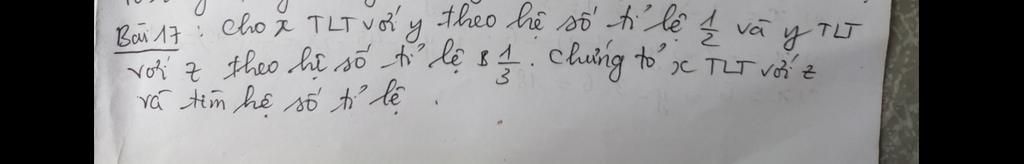 Bài 17 : Cho x TLT với y theo hệ số tỉ lệ 1/2 và y TLT
với z theo hệ số tỉ lệ 1/3 . Chứng tỏ x TLT với z
và tìm hệ số tỉ lệ .